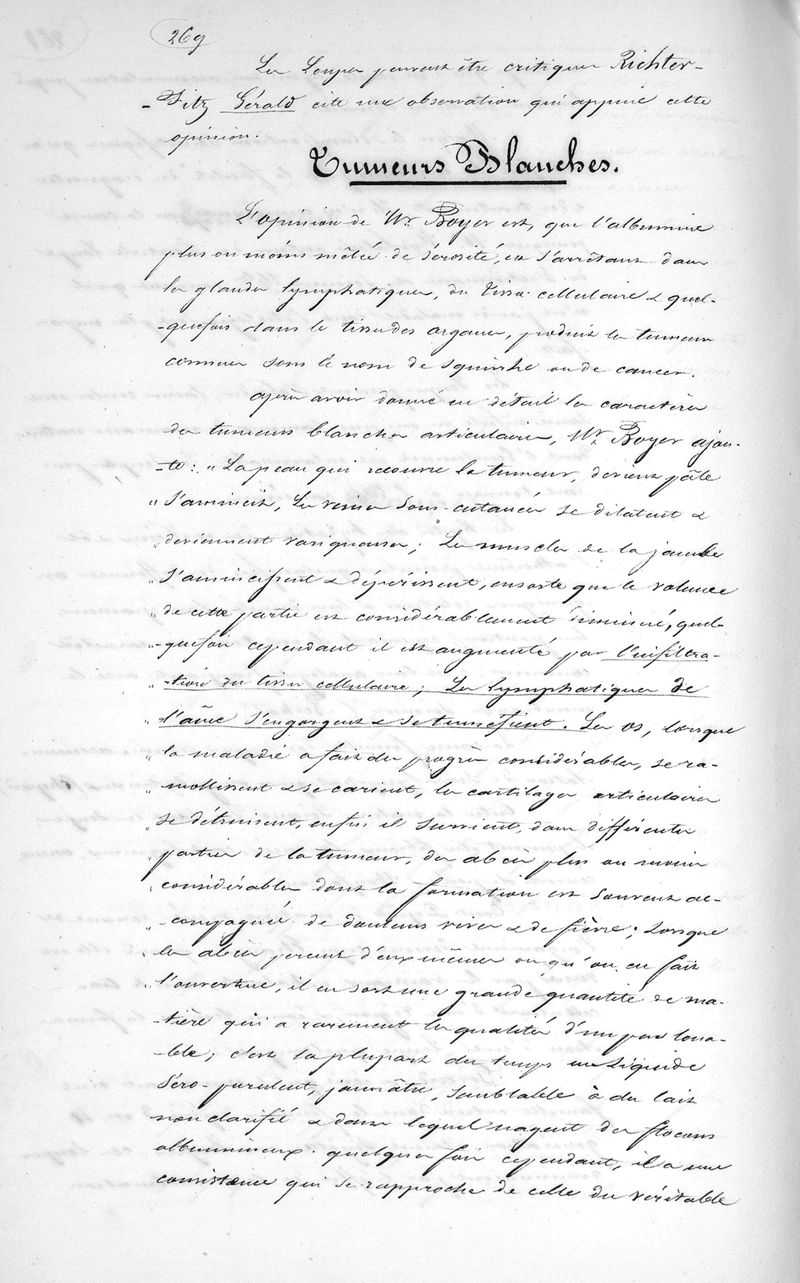 269
Les Loupes peuvent être critiques Richter-
-Fitz Gérald cite une observation qui appuie cette
opinion.
Tumeurs Blanches.
L'opinion de Mr. Boyer est, que l'albumine
plus ou moins mêlée de sérosité, en s'arrêtant dans
les glandes lymphatiques, du tissu cellulaire & quel-
-quefois dans le tissu des organes, produit les tumeurs
connues sous le nom de squirrhe ou de cancer.
après avoir donné en détail les caractères
des tumeurs blanches articulaires, Mr. Boyer ajou-
-te: "La peau qui recouvre la tumeur, devient pâle
" s'amincit, les veines sous-cutanées se dilatent &
deviennent variqueuses; Les muscles de la jambe
" s'amincissent & dépérissent, ensorte que le volume
" de cette partie est considérablement diminué, quel-
" -quefois cependant il est augmenté par l'infiltra-
" -tion du tissu cellulaire; Les lymphatiques de
" l'aîne s'engorgent & se tuméfient. Les os, lorsque
" la maladie a fait des progrès considérables, se ra-
" mollissent & se carient, les cartilages articulaires
" se détruisent, enfin il survient, dans différentes
" parties de la tumeur, des abcès plus ou moins
" considérables dont la formation est souvent ac-
" -compagnée de douleurs vives & de fièvre; lorsque
" les abcès percent d'eux mêmes ou qu'on en fait
" l'ouverture, il en sort une grande quantité de ma-
-tière qui a rarement les qualités d'un pus loua-
-ble; c'est la plupart du temps un liquide
séro-purulent, jaunâtre, semblable à du lait
non clarifié & dans lequel nagent des flocons
albumineux. quelques fois cependant, il a une
consistance qui se rapproche de celle du véritable